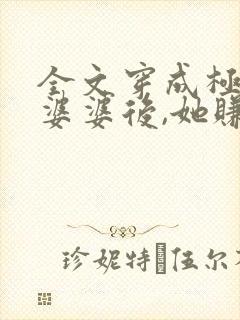 全文穿成極
婆婆後,她賺
珍妮特 伍尔